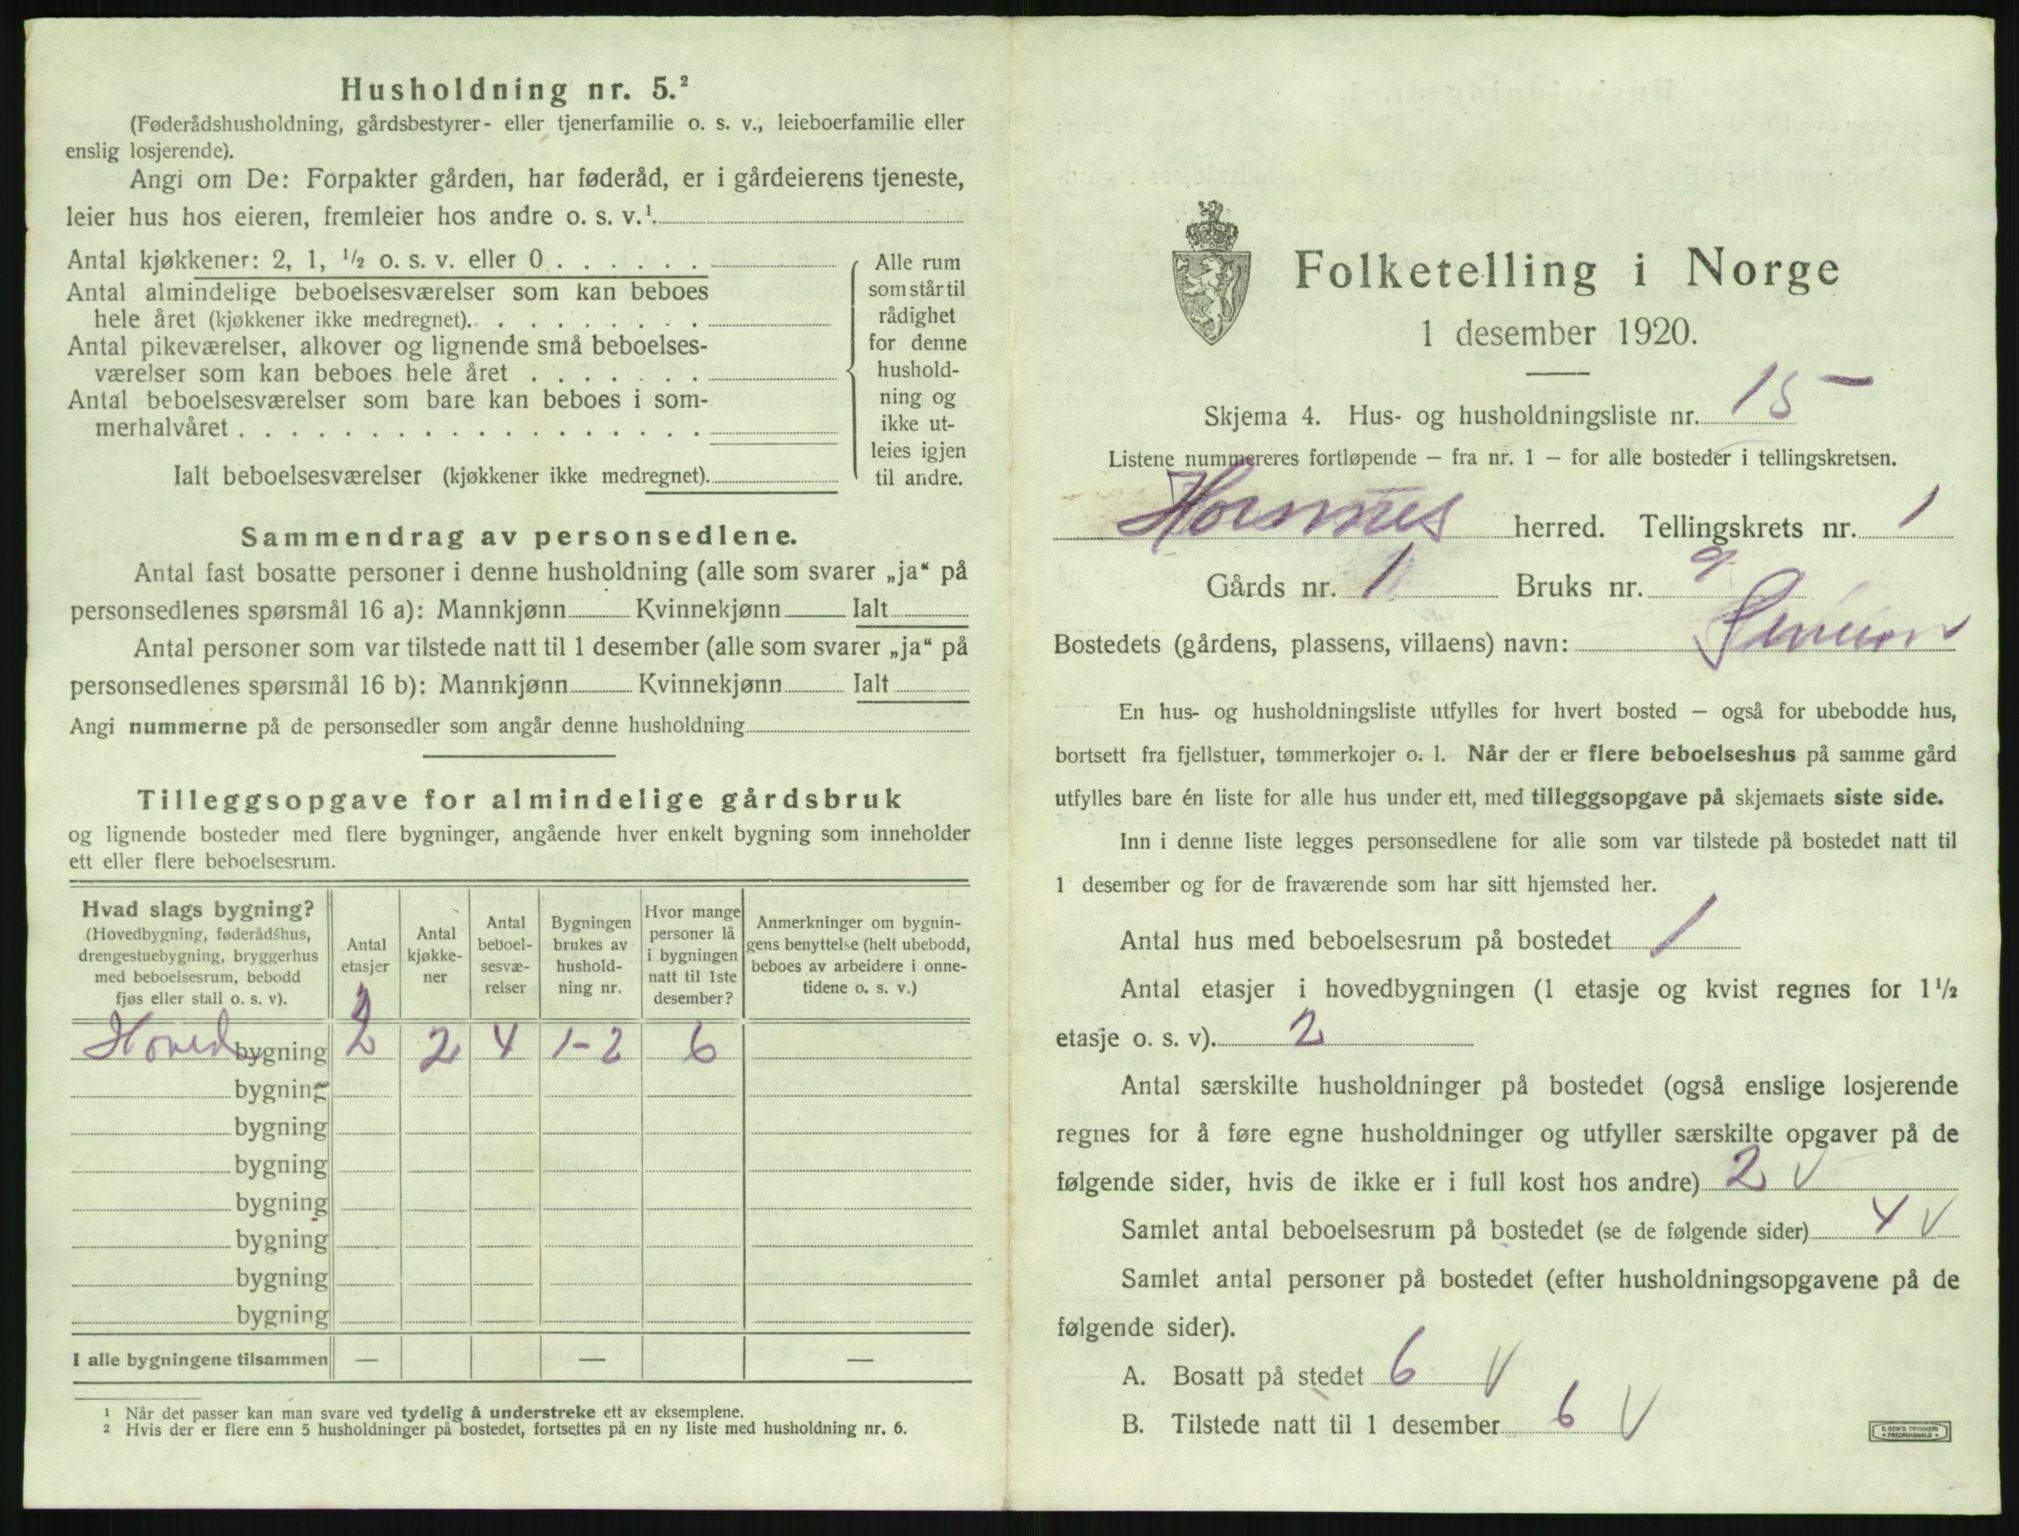 Husholdning nr. 5.²
(Føderådshusholdning, gårdsbestyrer- eller tjenerfamilie o. s. v., leieboerfamilie eller
enslig losjerende).
Angi om De: Forpakter gården, har føderåd, er i gårdeierens tjeneste,
leier hus hos eieren, fremleier hos andre o. s. v.¹
Antal kjøkkener: 2, 1, ½ o. s. v. eller 0 . . . . . .
Antal almindelige beboelsesværelser som kan beboes
hele året (kjøkkener ikke medregnet). . . . . . . . .
Antal pikeværelser, alkover og lignende små beboelses-
værelser som kan beboes hele året . . . . . . .
Antal beboelsesværelser som bare kan beboes i som-
merhalvåret . . . . . . . . . . . . . . . . . .
Ialt beboelsesværelser (kjøkkener ikke medregnet).
Alle rum
som står til
rådighet
for denne
hushold-
ning og
ikke ut-
leies igjen
til andre.
Sammendrag av personsedlene.
Antal fast bosatte personer i denne husholdning (alle som svarer „ja“ på
personsedlenes spørsmål 16 a): Mannkjønn Kvinnekjønn Ialt
Antal personer som var tilstede natt til 1 desember (alle som svarer „ja“ på
personsedlenes spørsmål 16 b): Mannkjønn Kvinnekjønn Ialt
Angi nummerne på de personsedler som angår denne husholdning
Tilleggsopgave for almindelige gårdsbruk
og lignende bosteder med flere bygninger, angående hver enkelt bygning som inneholder
ett eller flere beboelsesrum.
Hvad slags bygning?
(Hovedbygning, føderådshus,
drengestuebygning, bryggerhus
med beboelsesrum, bebodd
fjøs eller stall o. s. v).
Antal
etasjer
Antal
kjøkke-
ner
Antal
beboel-
sesvæ-
relser
Bygningen
brukes av
hushold-
ning nr.
Hvor mange
personer lå
i bygningen
natt til 1ste
desember?
Anmerkninger om bygnin-
gens benyttelse (helt ubebodd,
beboes av arbeidere i onne-
tidene o. s. v.)
Hovedbygning 2 2 4 1-2 6
bygning
bygning
bygning
bygning
bygning
bygning
bygning
I alle bygningene tilsammen — — —
¹ Når det passer kan man svare ved tydelig å understreke ett av eksemplene.
² Hvis der er flere enn 5 husholdninger på bostedet, fortsettes på en ny liste med husholdning nr. 6.
Folketelling i Norge
1 desember 1920.
Skjema 4. Hus- og husholdningsliste nr. 15
Listene nummereres fortløpende – fra nr. 1 – for alle bosteder i tellingskretsen.
herred. Tellingskrets nr. 1
Gårds nr. 1 Bruks nr. 9
Bostedets (gårdens, plassens, villaens) navn:
En hus- og husholdningsliste utfylles for hvert bosted – også for ubebodde hus,
bortsett fra fjellstuer, tømmerkojer o. l. Når der er flere beboelseshus på samme gård
utfylles bare én liste for alle hus under ett, med tilleggsopgave på skjemaets siste side.
Inn i denne liste legges personsedlene for alle som var tilstede på bostedet natt til
1 desember og for de fraværende som har sitt hjemsted her.
Antal hus med beboelsesrum på bostedet 1
Antal etasjer i hovedbygningen (1 etasje og kvist regnes for 1½
etasje o. s. v). 2
Antal særskilte husholdninger på bostedet (også enslige losjerende
regnes for å føre egne husholdninger og utfyller særskilte opgaver på de
følgende sider, hvis de ikke er i full kost hos andre) 2 V
Samlet antal beboelsesrum på bostedet (se de følgende sider) 4 V
Samlet antal personer på bostedet (efter husholdningsopgavene på de
følgende sider).
A. Bosatt på stedet 6 V
B. Tilstede natt til 1 desember 6 V